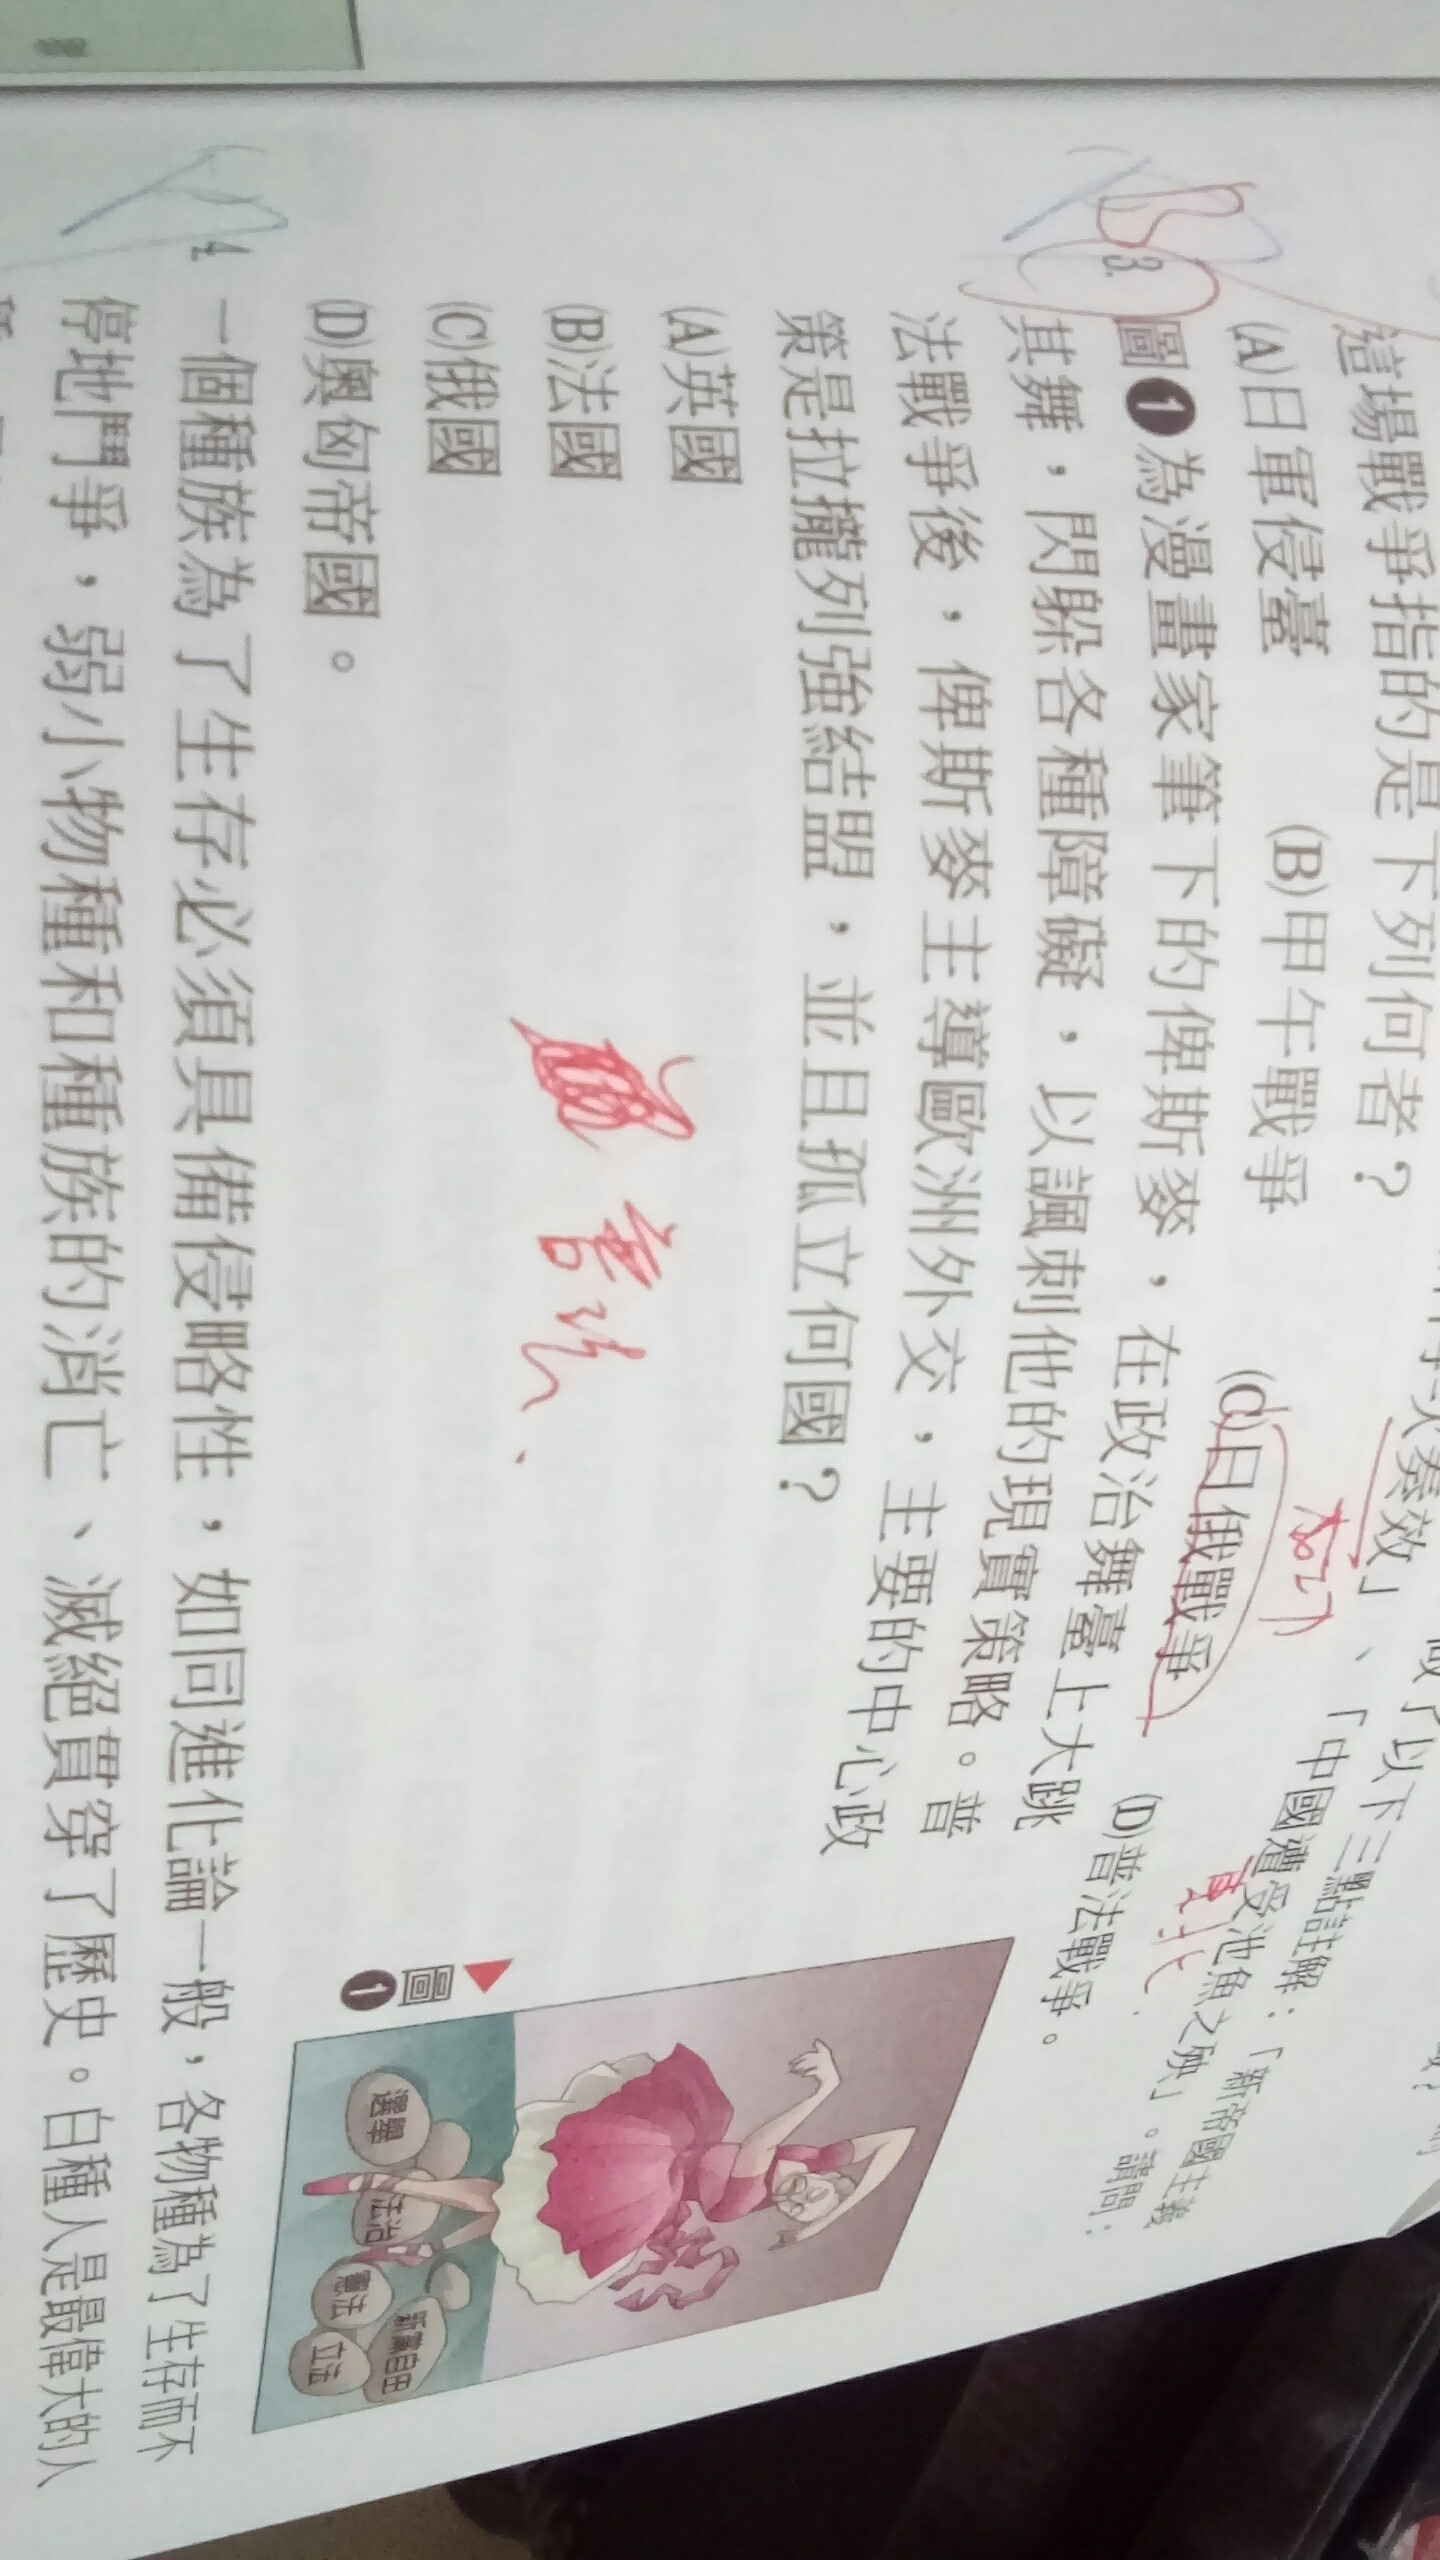 這場戰爭指的是下列何者？
做了以下三點註解：「新帝國主義
奏效」、「中國遭受池魚之殃」。請問：
(A)日軍侵臺 (B)甲午戰爭 (C)日俄戰爭 (D)普法戰爭。
B
3. 圖❶為漫畫家筆下的俾斯麥，在政治舞臺上大跳
其舞，閃躲各種障礙，以諷刺他的現實策略。普
法戰爭後，俾斯麥主導歐洲外交，主要的中心政
策是拉攏列強結盟，並且孤立何國？
(A)英國
(B)法國
(C)俄國
(D)奧匈帝國。
普法
東北
圖❶
選舉
法治
憲法
新黨自由
立法
4. 一個種族為了生存必須具備侵略性，如同進化論一般，各物種為了生存而不
停地鬥爭，弱小物種和種族的消亡、滅絕貫穿了歷史。白種人是最偉大的人